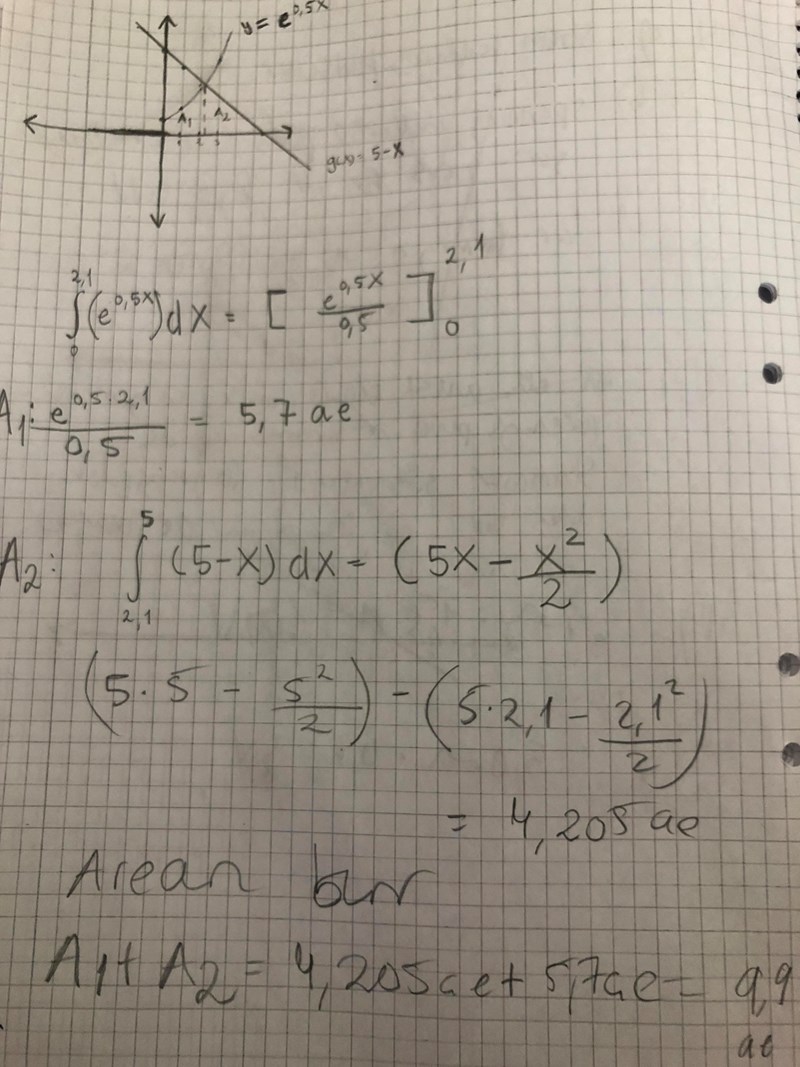 y = e^0,5x
A₁ A₂
1 2 3
g(x) = 5-x
∫₀^2,1 (e^0,5x) dx = [ e^0,5x / 0,5 ]₀^2,1
A₁: e^0,5·2,1 / 0,5 = 5,7 ae
A₂: ∫₂,₁^5 (5-x) dx = (5x - x²/2)
(5·5 - 5²/2) - (5·2,1 - 2,1²/2)
= 4,205 ae
Arean blir
A₁ + A₂ = 4,205ae + 5,7ae = 9,9
ae